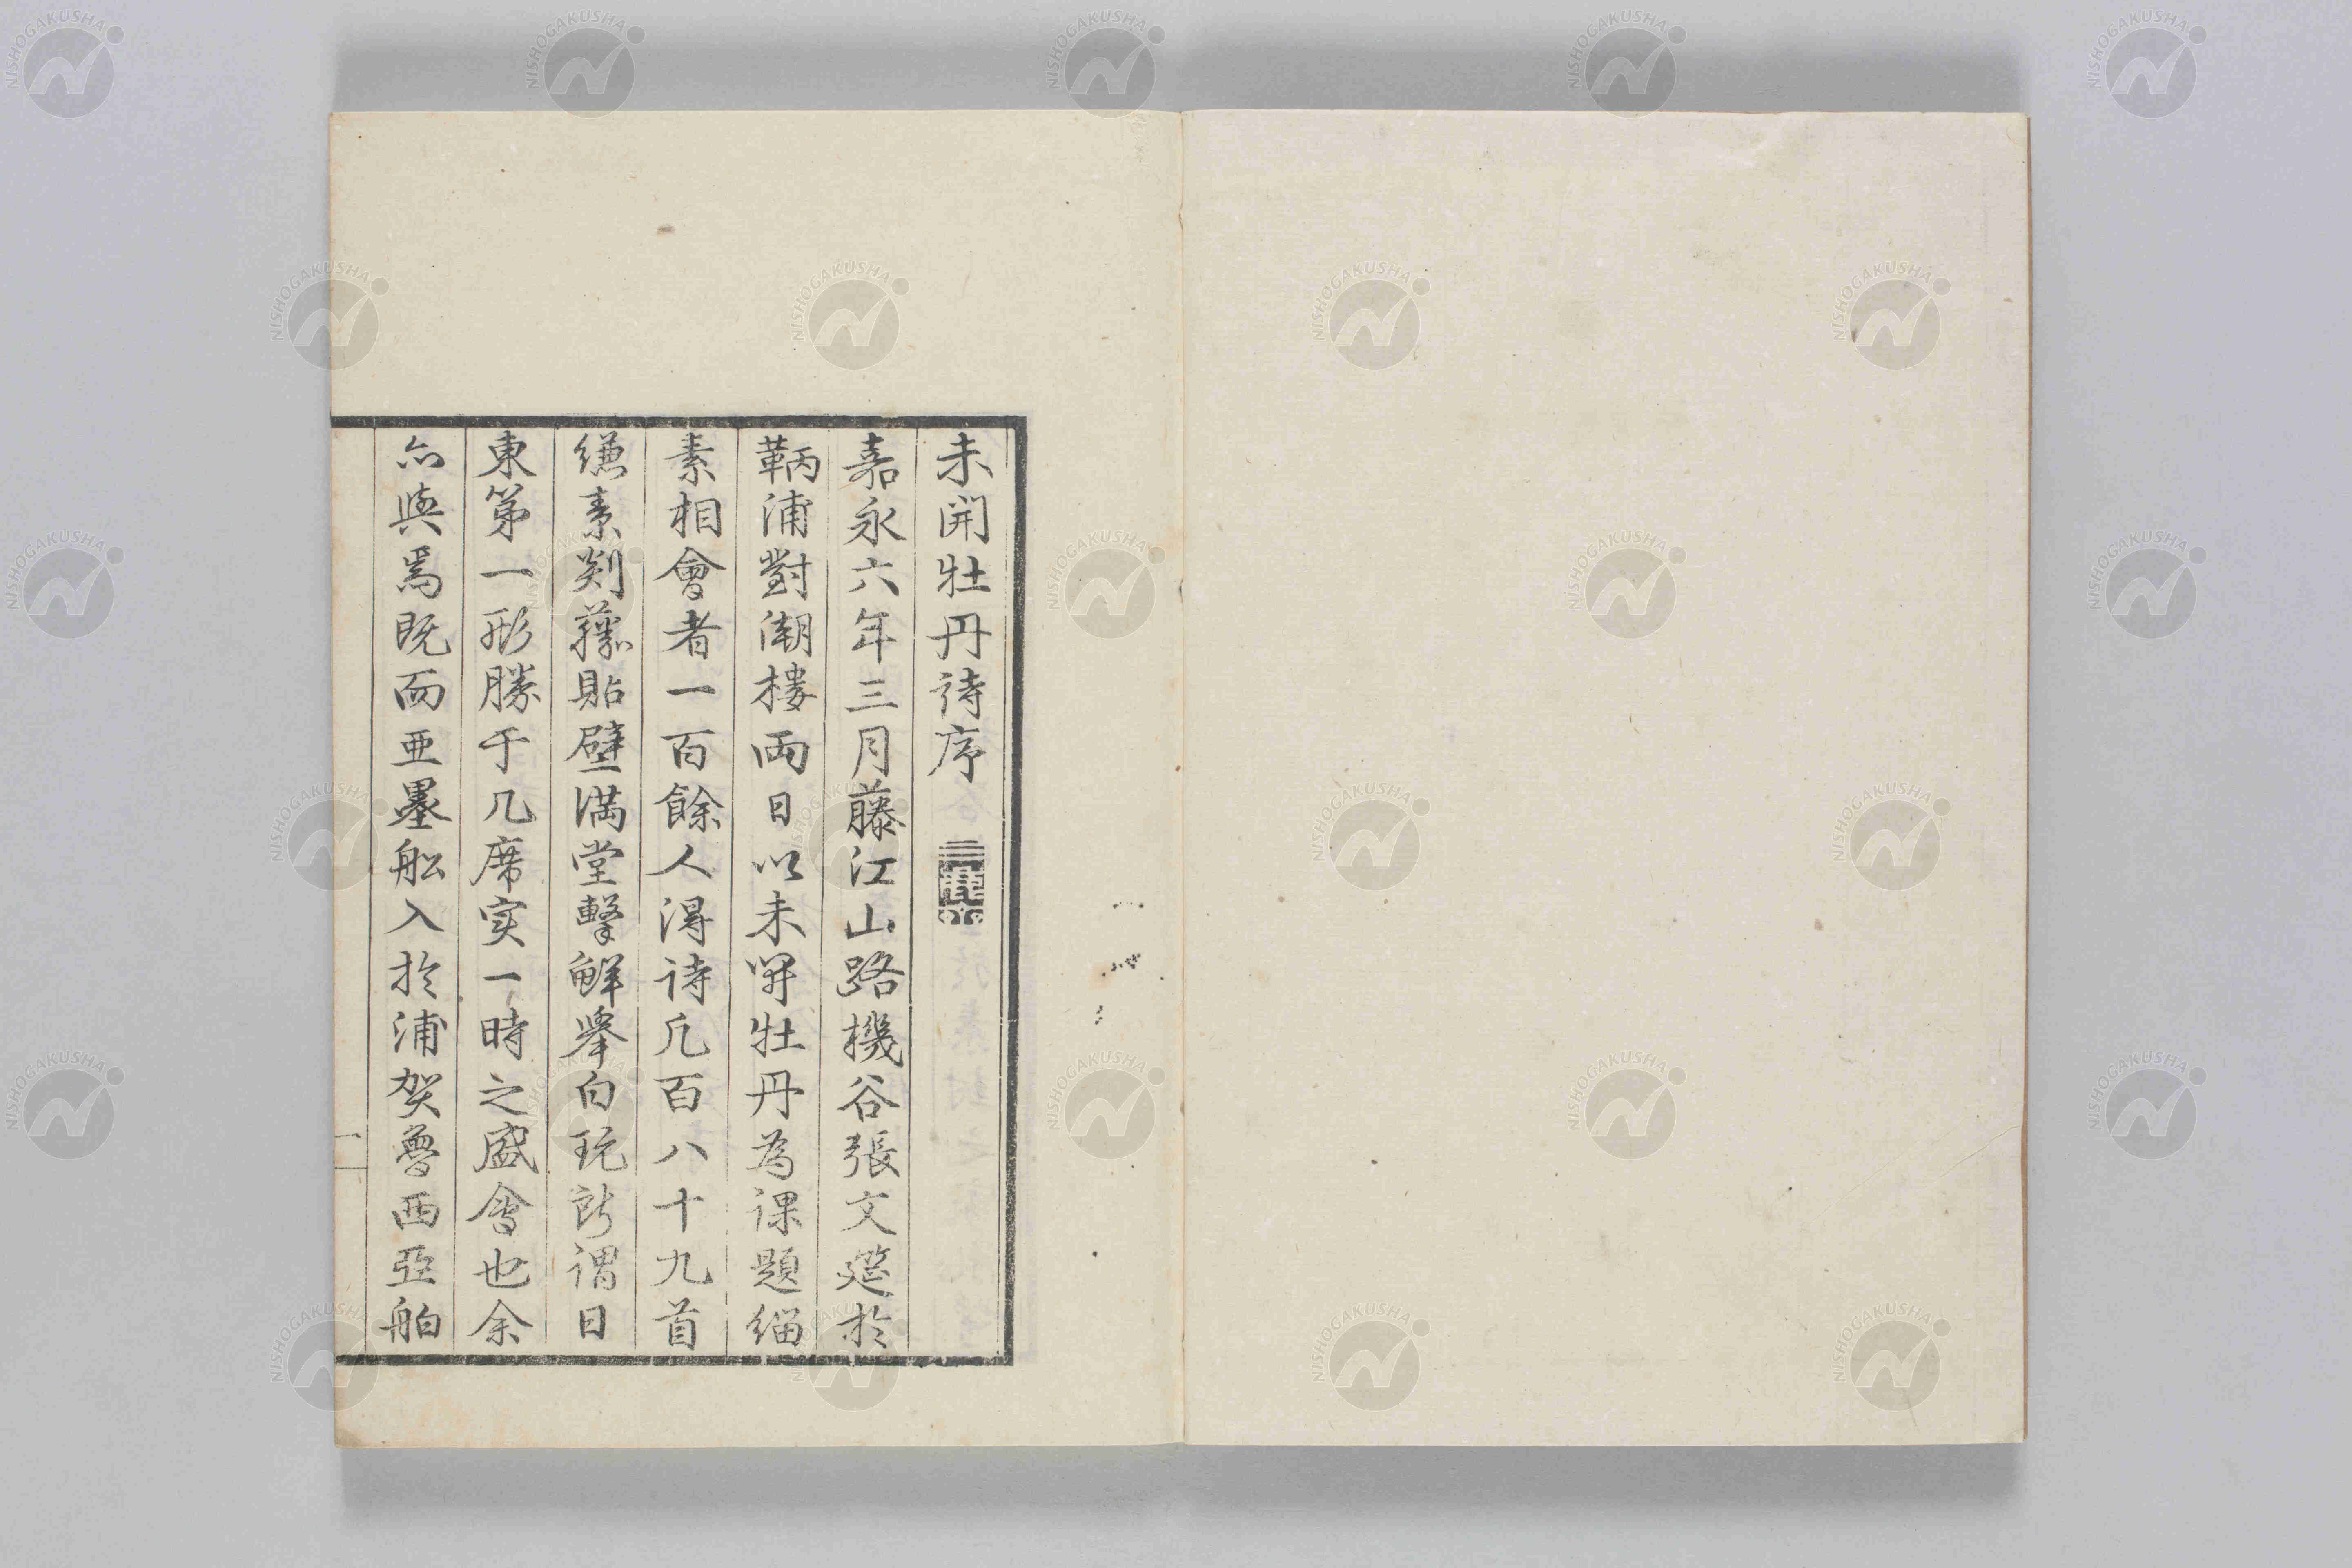 未開牡丹詩序
嘉永六年三月藤江山路機谷張文筵於
鞆浦對潮樓両日以未開牡丹為課題緇
素相會者一百餘人得詩凢百八十九首
縑素剡藤貼壁満堂擊鮮舉白玩
謂日
東第一形勝于几席実一時之盛會也余
亦與焉既而亜墨船入於浦賀魯西亞舶
一
NISHOGAKUSHA